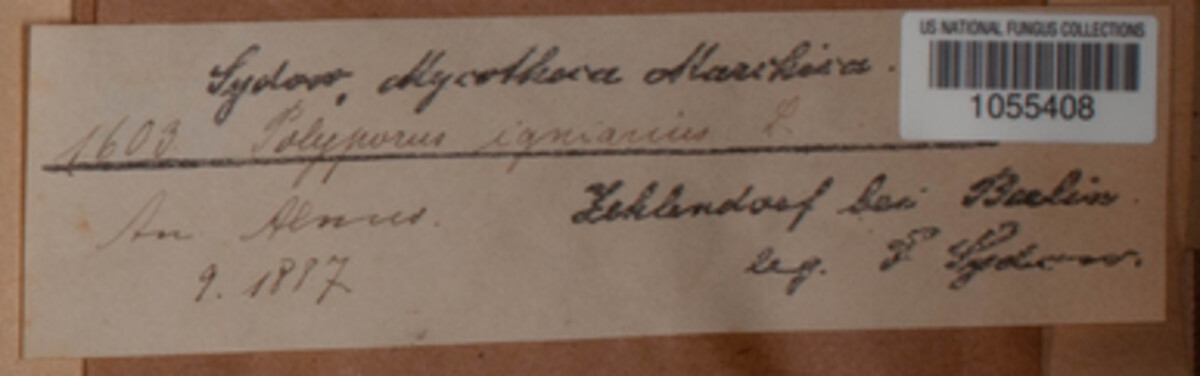 US NATIONAL FUNGUS COLLECTIONS
1055408
Sydow, Mycotheca Marchica.
1603 Polyporus igniarius L.
An Alnus.
Zehlendorf bei Berlin.
9. 1887
leg. P Sydow.